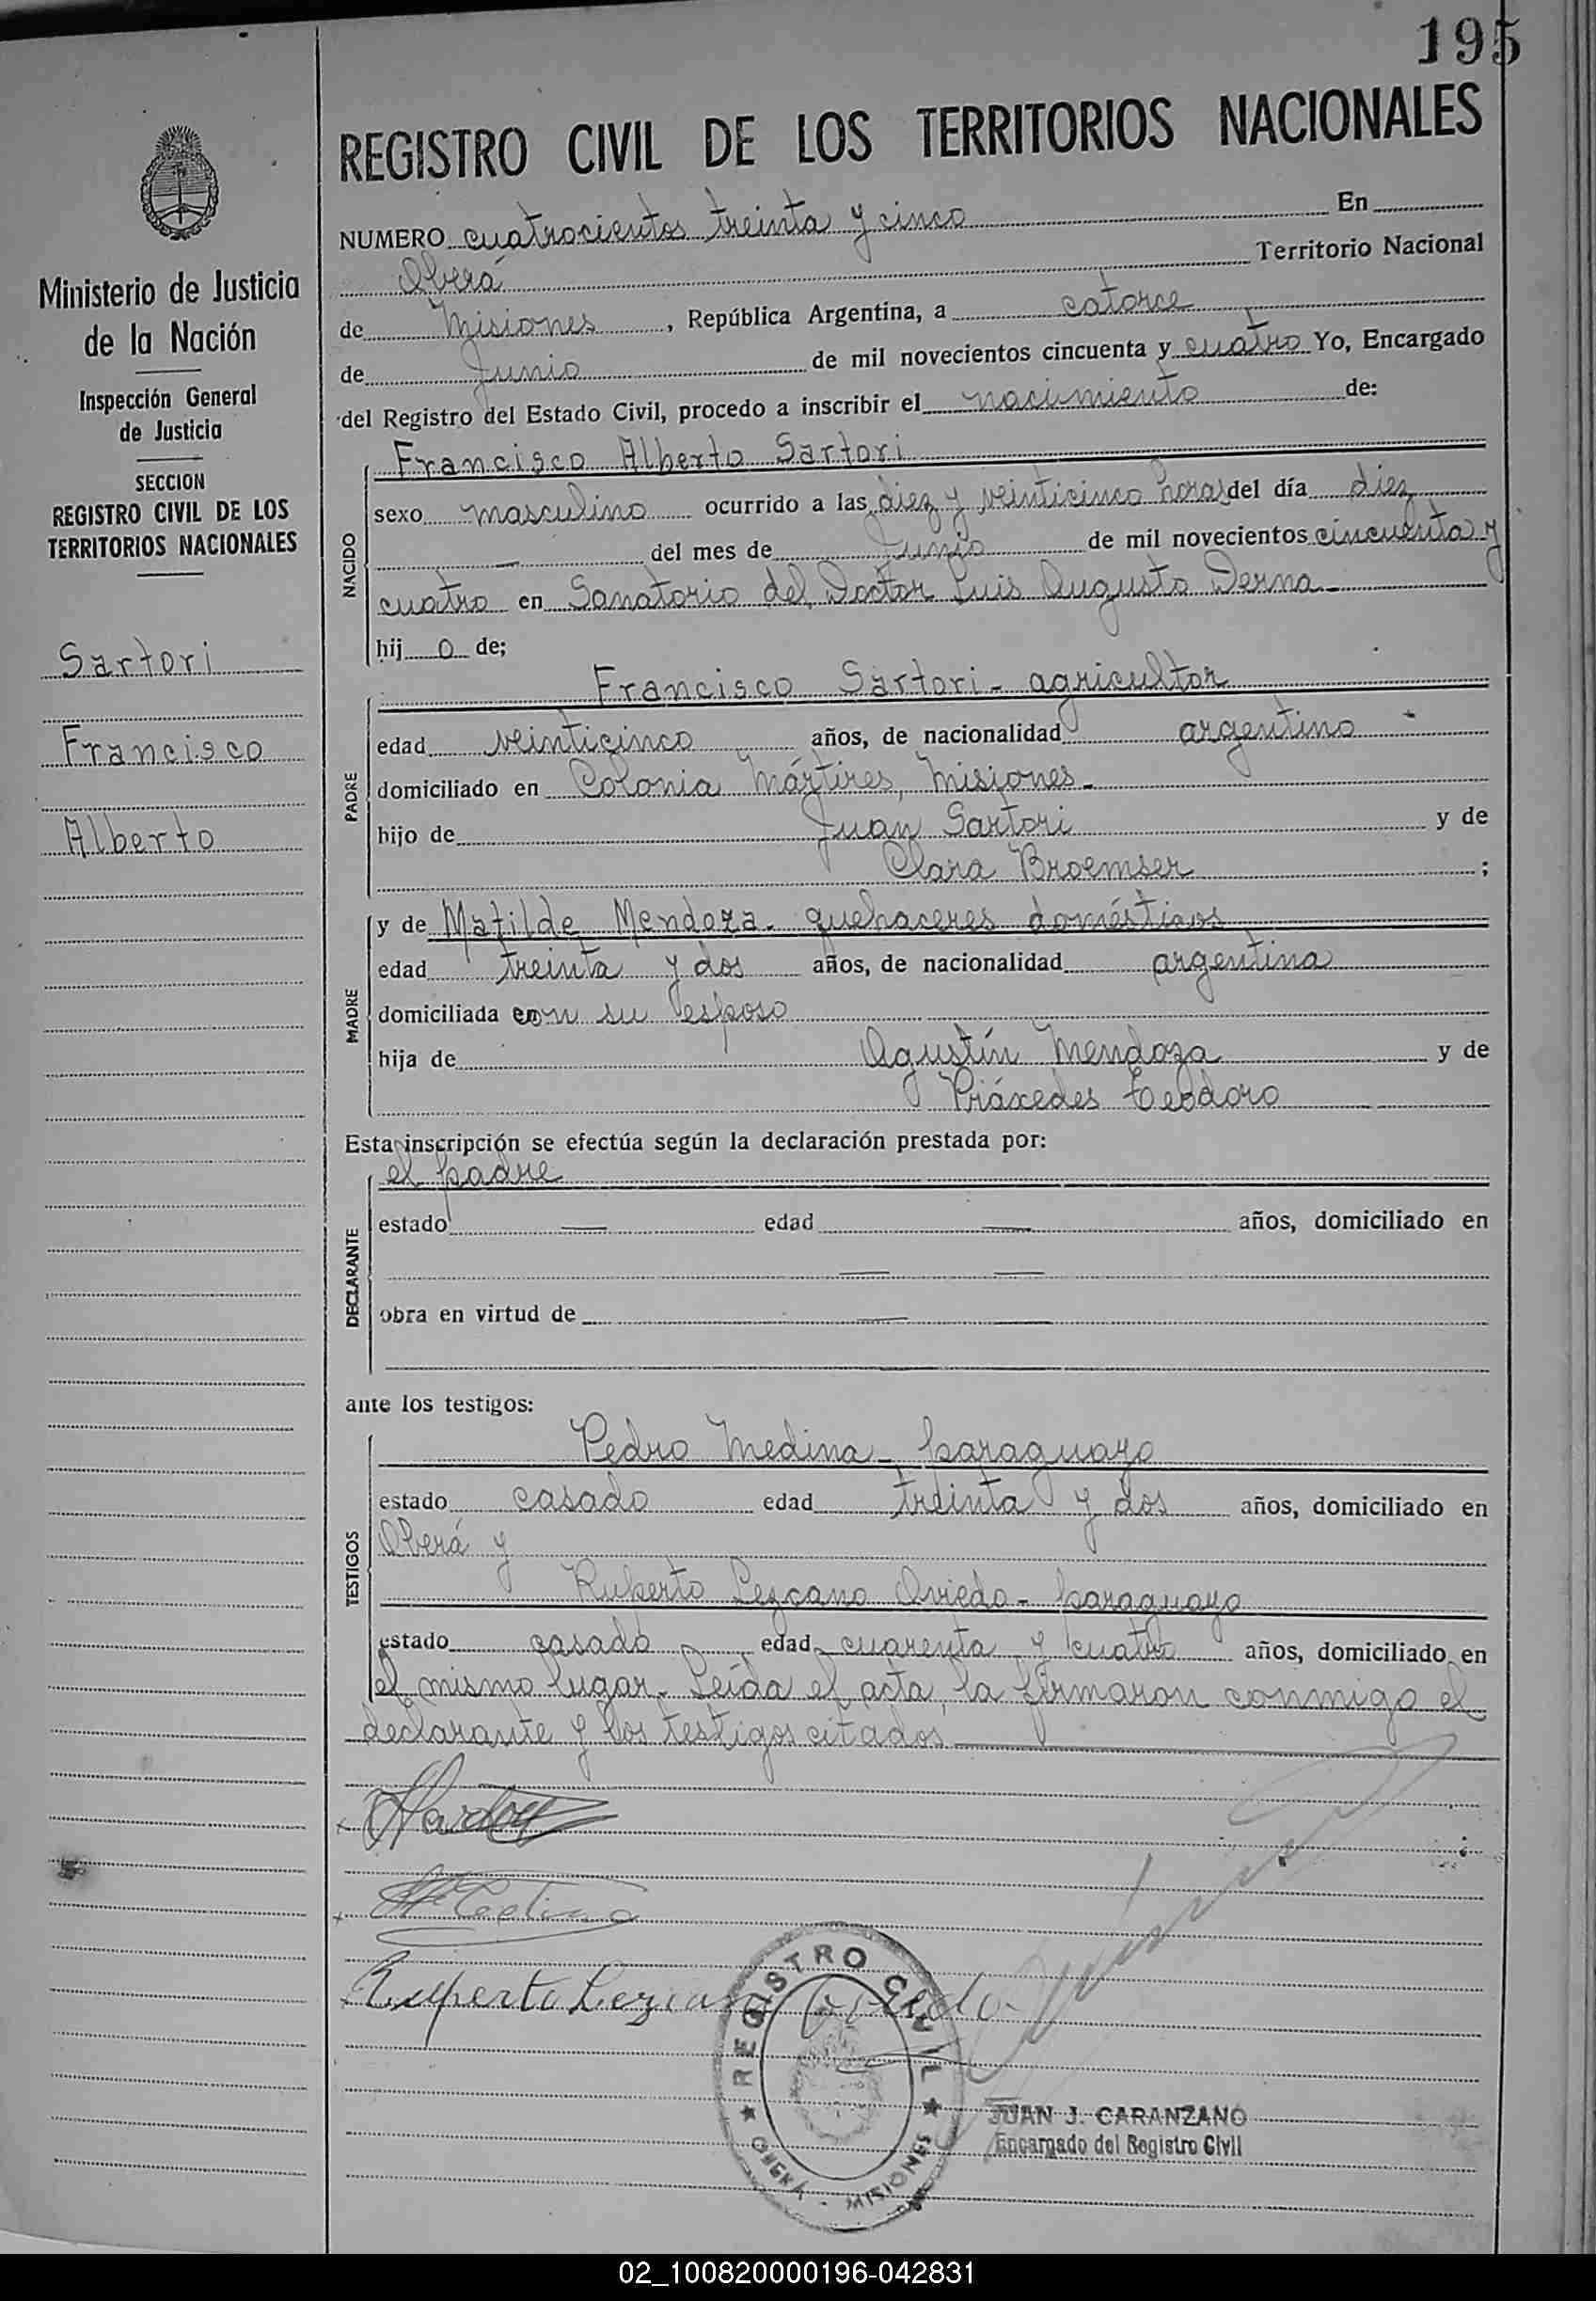 195
REGISTRO CIVIL DE LOS TERRITORIOS NACIONALES
Ministerio de Justicia
de la Nación
Inspección General
de Justicia
SECCION
REGISTRO CIVIL DE LOS
TERRITORIOS NACIONALES
Sartori
Francisco
Alberto
NUMERO cuatrocientos treinta y cinco En
Oberá Territorio Nacional
de Misiones, República Argentina, a catorce
de Junio de mil novecientos cincuenta y cuatro Yo, Encargado
del Registro del Estado Civil, procedo a inscribir el nacimiento de:
NACIDO
Francisco Alberto Sartori
sexo masculino ocurrido a las diez y veinticinco horas del día diez
— del mes de Junio de mil novecientos cincuenta y
cuatro en Sanatorio del Doctor Luis Augusto Derna-
hij o de;
PADRE
Francisco Sartori - agricultor
edad veinticinco años, de nacionalidad argentino -
domiciliado en Colonia Mártires, Misiones-
hijo de Juan Sartori y de
Clara Broemser ;
MADRE
y de Matilde Mendoza - quehaceres domésticos
edad treinta y dos años, de nacionalidad argentina
domiciliada en con su esposo
hija de Agustín Mendoza y de
Práxedes Teodoro
Esta inscripción se efectúa según la declaración prestada por:
DECLARANTE
el padre
estado — edad — años, domiciliado en
— —
obra en virtud de —
ante los testigos:
TESTIGOS
Pedro Medina - paraguayo
estado casado edad treinta y dos años, domiciliado en
Oberá y
Ruperto Lezcano Oviedo - paraguayo
estado casado edad cuarenta y cuatro años, domiciliado en
el mismo lugar. Leída el acta, la firmaron conmigo el
declarante y los testigos citados
Ruperto Lezcano Oviedo
REGISTRO CIVIL
OBERÁ - MISIONES
JUAN J. CARANZANO
Encargado del Registro Civil
02_100820000196-042831